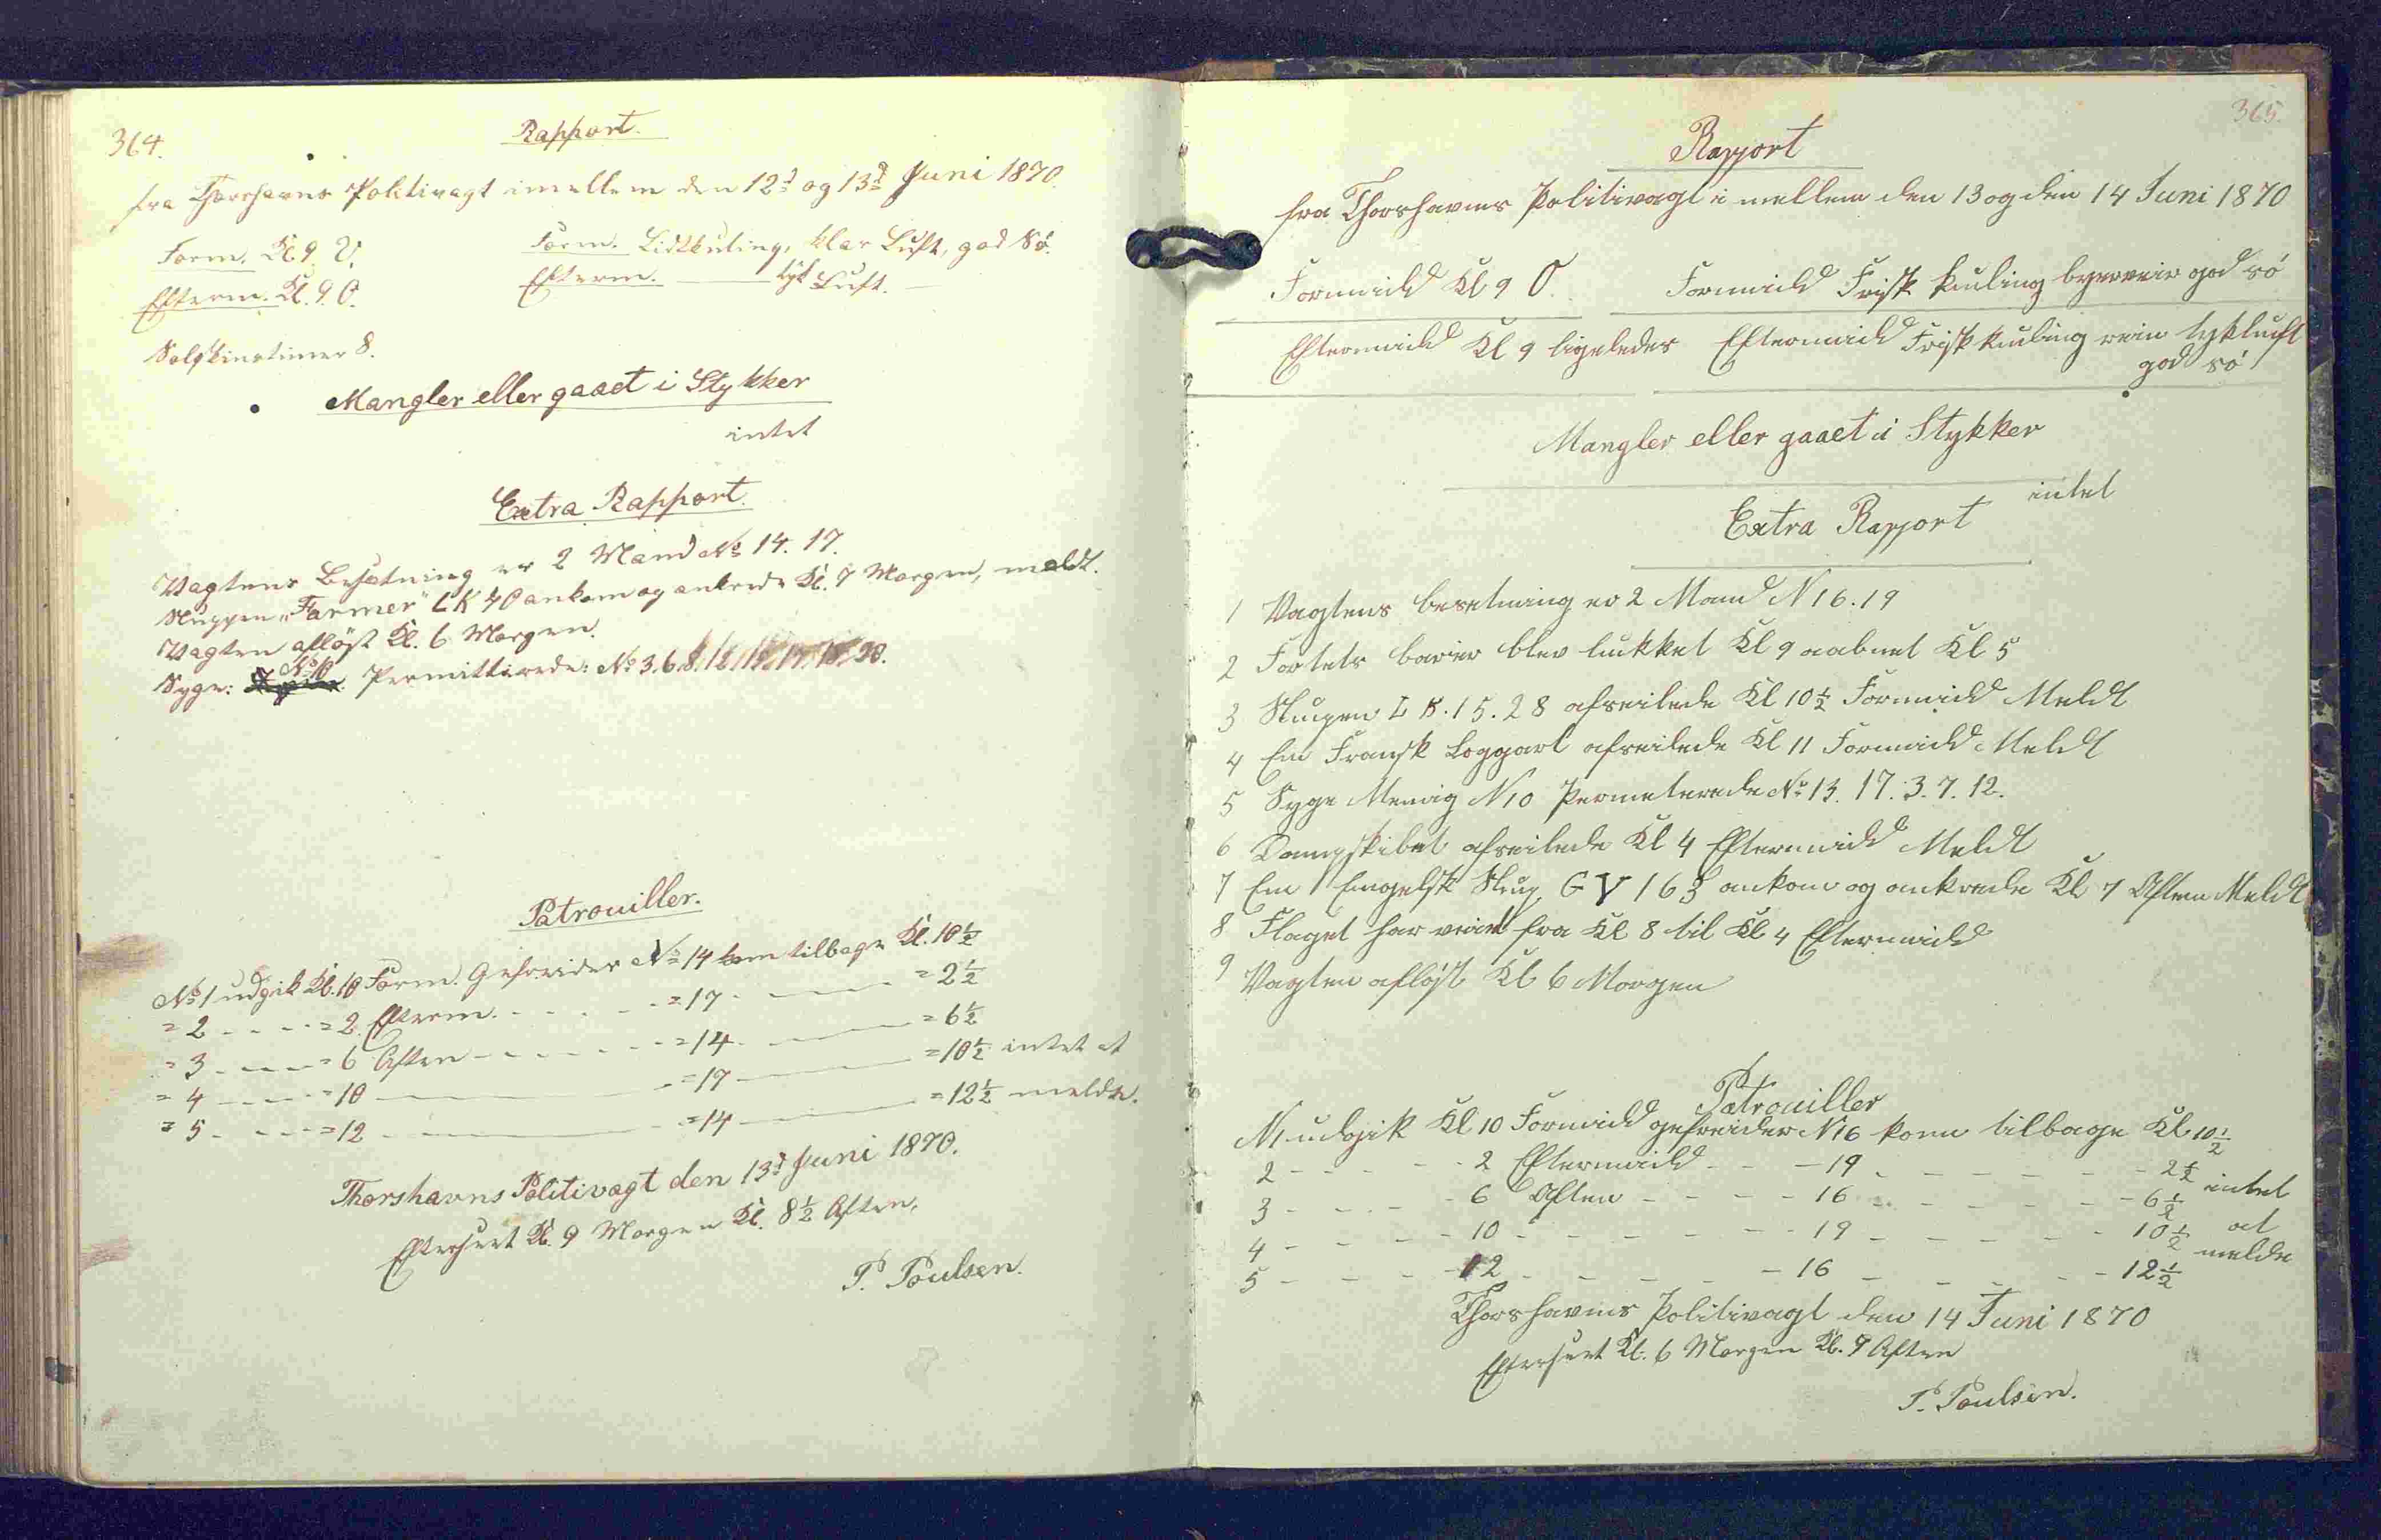 364.
Rapport.
fra Thorshavns Politivagt imellem den 12d og 13d Juni 1870.
Form. Kl. 9. V.
Form. Lidt Kuling, klar Luft, god Sö.
Efterm. Kl. 9. O.
Efterm. — tyk Luft. —
Solskinstimer 8.
Mangler eller gaaet i Stykker
intet
Extra Rapport.
Vagtens Besætning er 2 Mand No 14. 17.
Sluppen "Farmer" LK 40 ankom og ankrede Kl. 7 Morgen, meldt.
Vagten aflöst Kl. 6 Morgen.
Syge: No 10. Permitterede: No 3. 6. 8.
Patrouiller.
No 1 udgik Kl. 10 Form. Gefreider No 14 kom tilbage Kl. 10½
= 2 - - - = 2 Efterm. - - - = 17 - — = 2½
= 3 - - - = 6 Aften - - - = 14 - — = 6½
= 4 - - - = 10 — = 17 — = 10½ intet at
= 5 - - - = 12 — = 14 — = 12½ melde.
Thorshavns Politivagt den 13d Juni 1870.
Efterseet Kl. 9 Morgen Kl. 8½ Aften.
P. Poulsen.
365.
Rapport
fra Thorshavns Politivagt i mellem den 13 og den 14 Juni 1870
Formidd Kl 9 O.
Formidd Frisk kuling byerveir god sö
Eftermidd Kl 9 ligeledes
Eftermidd Frisk kuling rein tykluft
god sö
Mangler eller gaaet i Stykker
intet
Extra Rapport
1 Vagtens besetning er 2 Mand N 16. 19
2 Fortets barier blev lukket Kl 9 aabnet Kl 5
3 Slupen LK. 15. 28 afseilede Kl 10½ Formidd Meldt
4 En Fransk Loggart afseilede Kl 11 Formidd Meldt
5 Syge Menig N 10 Permeterede No 13. 17. 3. 7. 12.
6 Dampskibet afseilede Kl 4 Eftermidd Meldt
7 En Engelsk Slup GY 163 ankom og ankrede Kl 7 Aften Meldt
8 Flaget har veiet fra Kl 8 til Kl 4 Eftermidd
9 Vagten aflöst Kl 6 Morgen
Patrouiller
N 1 udgik Kl 10 Formidd gefreider N 16 kom tilbage Kl 10½
2 - - - - 2 Eftermidd - - 19 - - - - - 2½ intet
3 - - - - 6 Aften - - - - 16 - - - - - 6½
4 - - - - 10 - - - - - - 19 - - - - - 10½ at
5 - - - - 12 - - - - - - 16 - - - - - 12½ melde
Thorshavns Politivagt den 14 Juni 1870
Efterseet Kl. 6 Morgen Kl. 9 Aften
P. Poulsen.